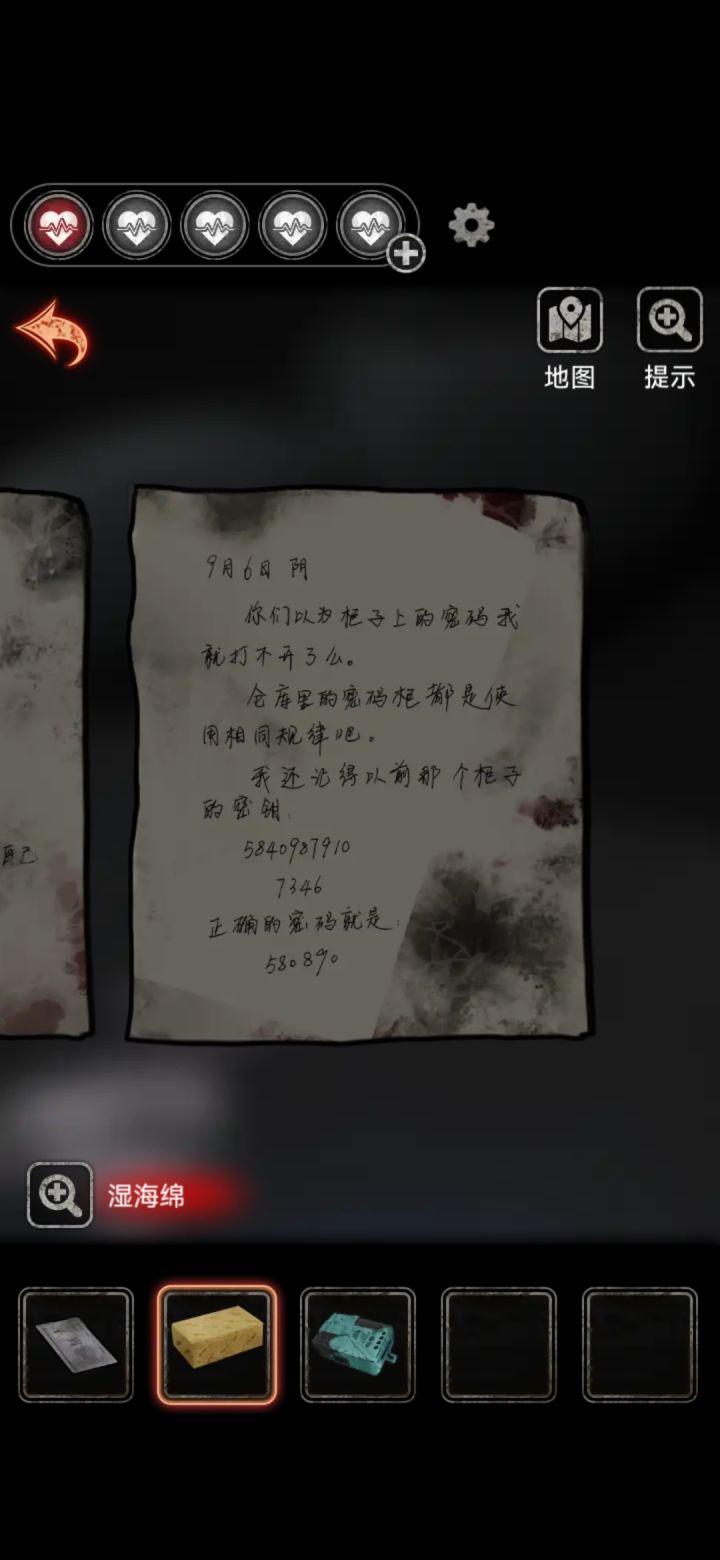 地图
提示
9月6日 阴
你们以为柜子上的密码我
就打不开了么。
仓库里的密码柜都是使
用相同规律吧。
我还记得以前那个柜子
的密钥.
5840987910
7346
自己
正确的密码就是:
580890
湿海绵